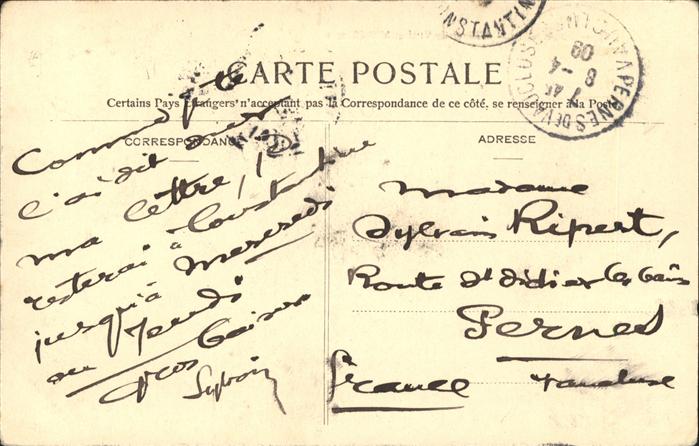 CONSTANTIN
PERNES DE VAUCLUSE VAUCLUSE
8 -4
09
CARTE POSTALE
Certains Pays Etrangers n'acceptant pas la Correspondance de ce côté, se renseigner à la Poste
CORRESPONDANCE
Comme je te
l'ai dit dans
ma lettre, je
resterai à Constantine
jusqu'à Mercredi
ou Jeudi
Gros baisers
Sylvain
ADRESSE
Madame
Sylvain Ripert,
Route St Didier les bains
Pernes
France Vaucluse